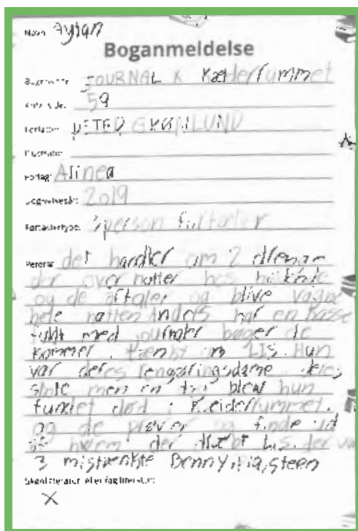 Navn Aylan
Boganmeldelse
JOURNAL X Kælderrummet
59
Forfatter: PETER GRØNLUND
Forlag: Alinea
2019
Fortællertype: 3person fortæller
det handler om 2 drenge
der over natter hos
og de aftaler og blive vågne
hele natten Anders har en kasse
fuldt med journaler bøger de
kommer om Lis. Hun
var deres rengøringsdame deres
skole men en dag blev hun
fundet død i Kælderrummet.
og de prøver og finde ud
af hvem der dræbt Lis. der var
3 mistænkte Benny, Mia, Steen
Skønlitteratur eller faglitteratur:
X